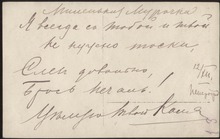 Миленькая Мурочка
Я всегда с тобой и твой
не нужно тоски,
Слез довольно,
Брось печаль!
твой Коля